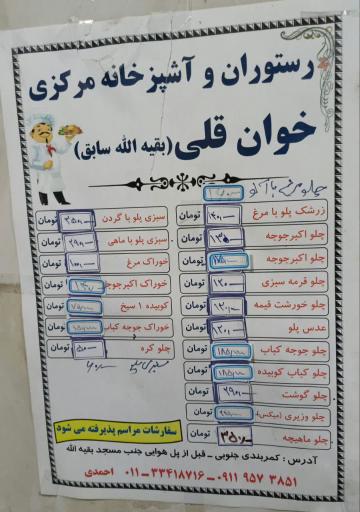 رستوران و آشپزخانه مرکزی
خوان قلی (بقیه الله سابق)
چلو مرغ با آلو
زرشک پلو با مرغ تومان
چلو اکبرجوجه ۱۳۵ تومان
چلو اکبرجوجه تومان
چلو قرمه سبزی ۱۲۰ تومان
چلو خورشت قیمه ۱۲۰،۰۰۰ تومان
عدس پلو ۱۲۰،۰۰۰ تومان
چلو جوجه کباب ۱۸۵،۰۰۰ تومان
چلو کباب کوبیده ۱۸۵،۰۰۰ تومان
چلو گوشت ۲۹۰،۰۰۰ تومان
چلو وزیری (میکس) تومان
چلو ماهیچه ۳۵۰،۰۰۰ تومان
سبزی پلو با گردن ۲۵۰،۰۰۰ تومان
سبزی پلو با ماهی تومان
خوراک مرغ ۱۰۰،۰۰۰ تومان
خوراک اکبرجوجه تومان
کوبیده ۱ سیخ تومان
خوراک جوجه کباب تومان
چلو کره ۵۰،۰۰۰ تومان
سفارشات مراسم پذیرفته می شود
آدرس : کمربندی جنوبی - قبل از پل هوایی جنب مسجد بقیه الله
۰۹۱۱ ۹۵۷ ۳۸۵۱ - ۰۱۱-۳۳۴۱۸۷۱۶ احمدی